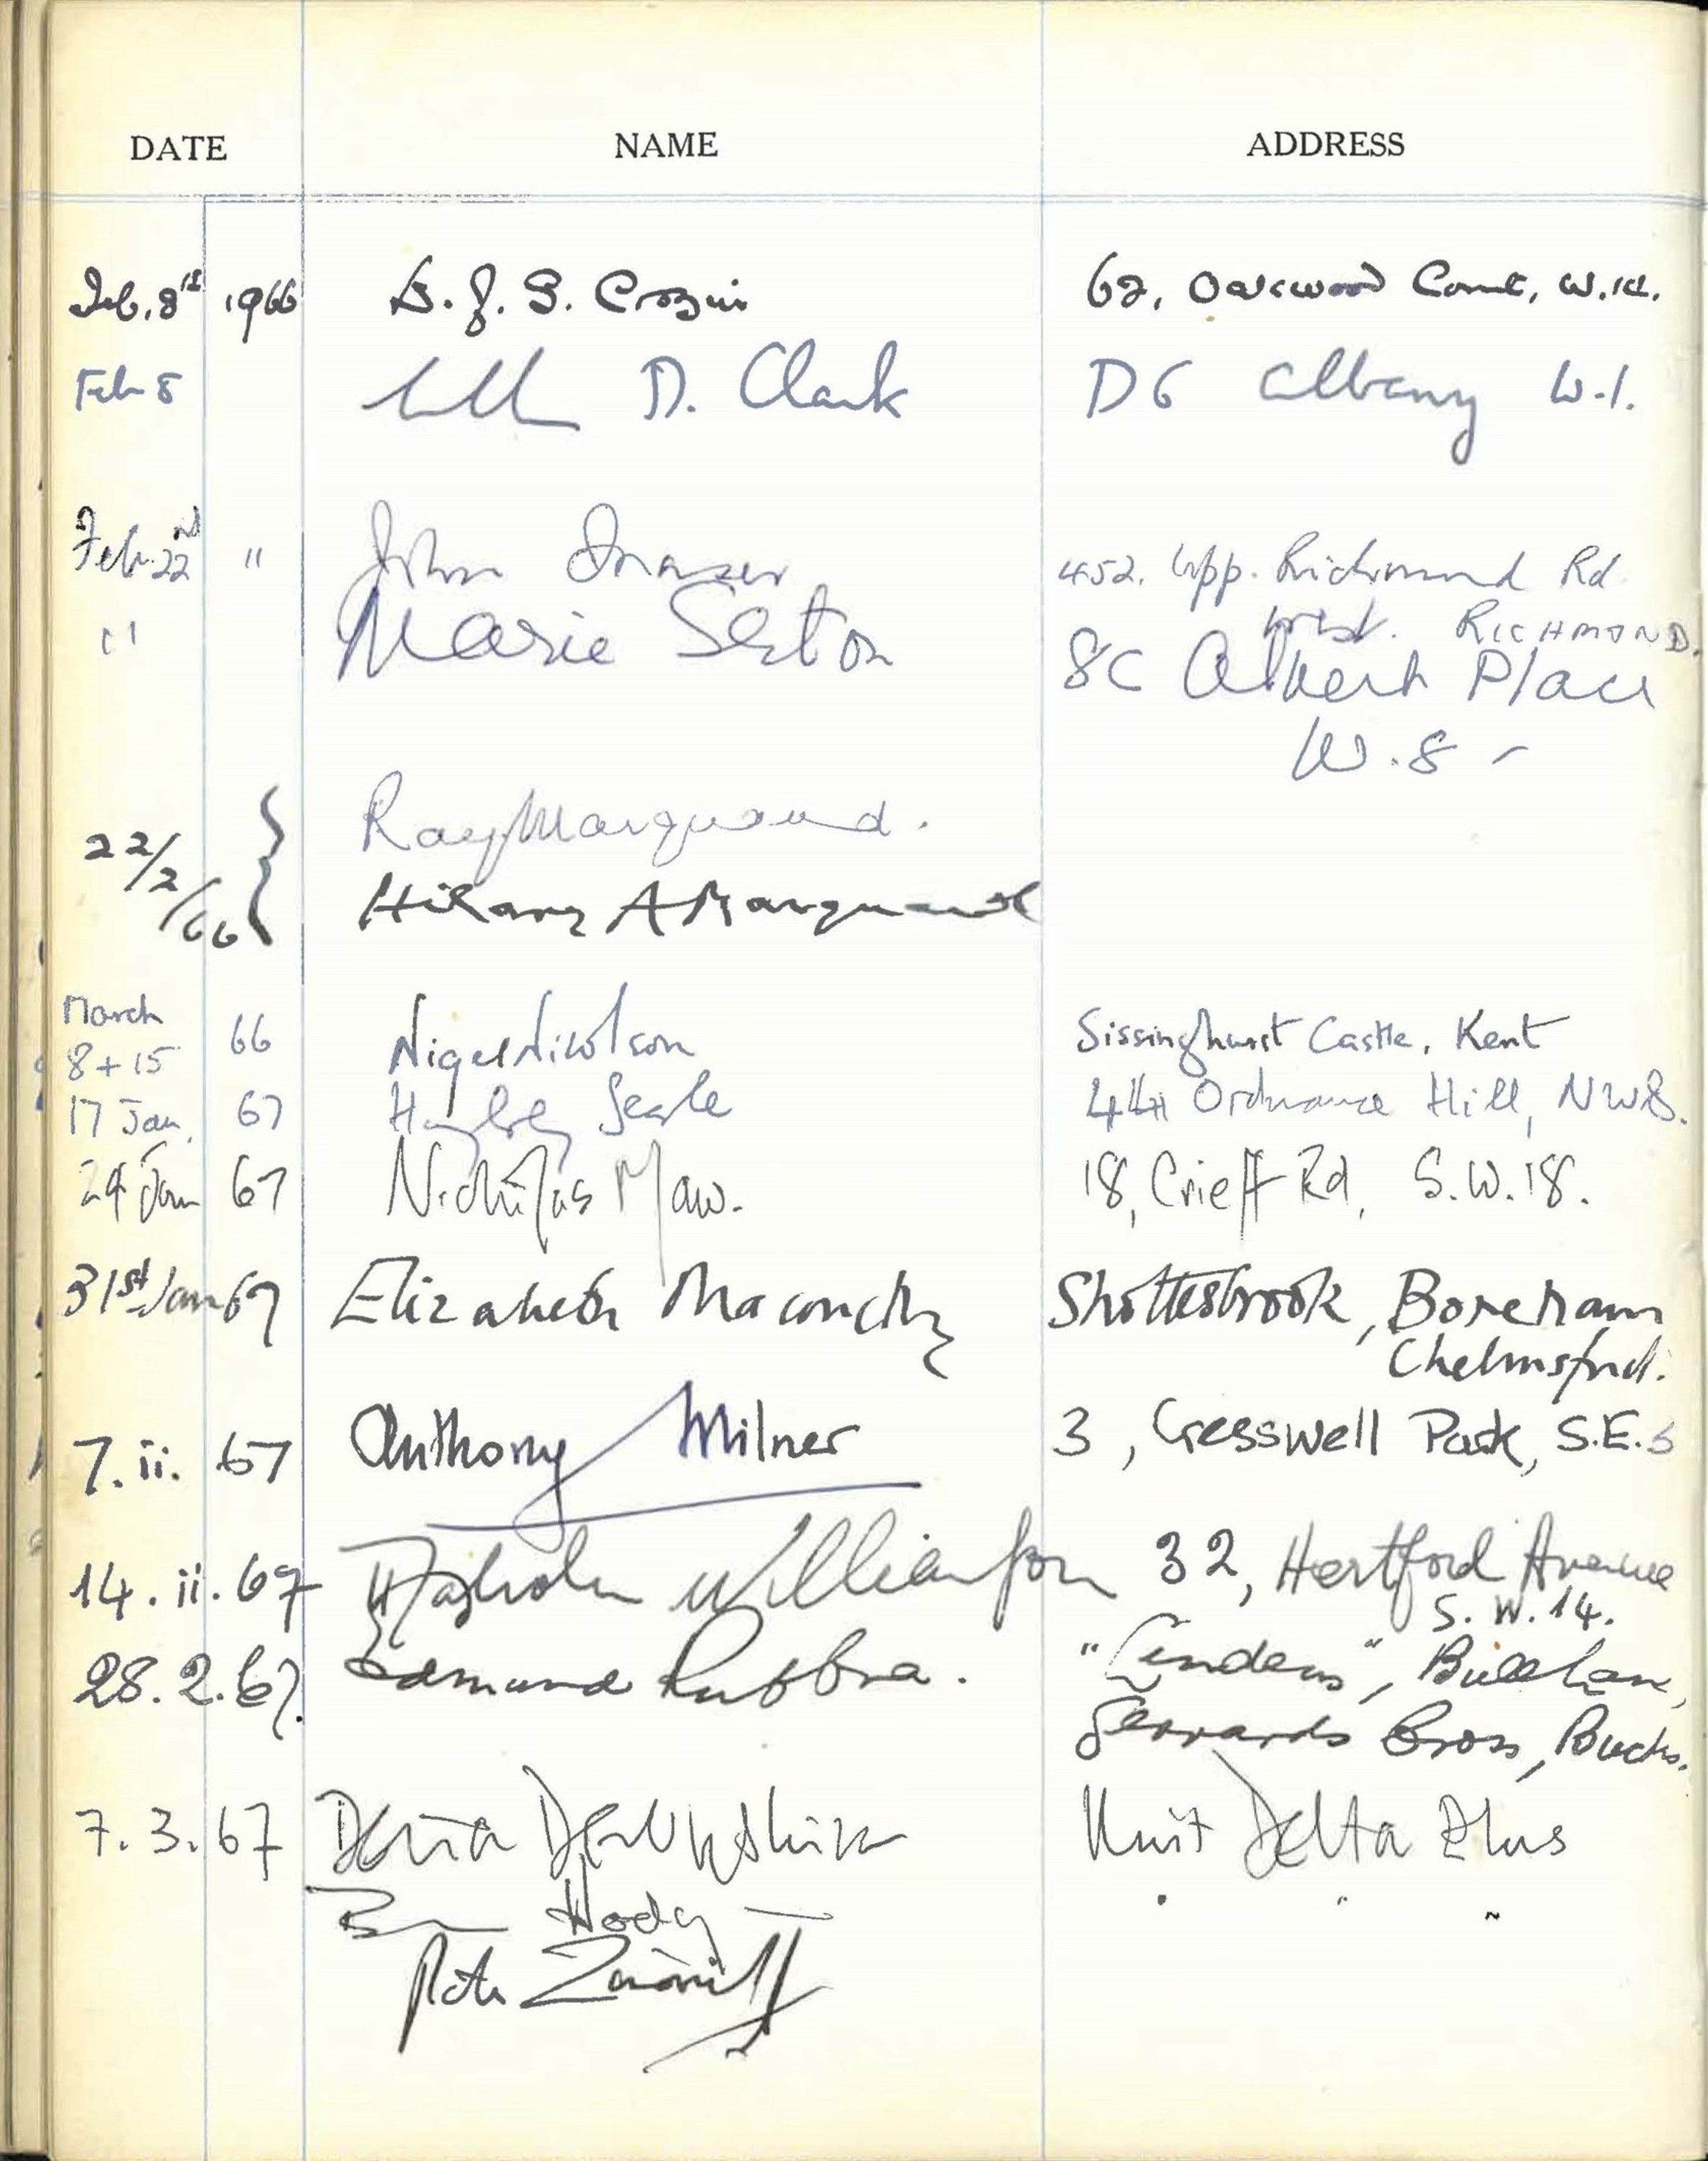 DATE NAME ADDRESS
Feb. 8th 1966 62, Oakwood Court, W.14.
Feb 8 D. Clark D6 Albany W.1.
Feb. 22nd " John Fraser 452. Upp. Richmond Rd
West. RICHMOND.
" Marie Seton 8C Albert Place
W.8 -
22/2/66 { Ray Marquand.
Hilary A Marquand
March
8 + 15 66 Nigel Nicolson Sissinghurst Castle, Kent
17 Jan, 67 Humphrey Searle 44 Ordnance Hill, NW8.
24 Jan 67 Nicholas Maw. 18, Crieff Rd, S.W.18.
31st Jan 67 Elizabeth Maconchy Shottesbrook, Boreham
Chelmsford.
7. ii. 67 Anthony Milner 3, Cresswell Park, S.E.3
14. ii. 67 Malcolm Williamson 32, Hertford Avenue
S.W.14.
28.2.67. Edmund Rubbra. "Lindens", Bull Lane,
Gerrards Cross, Bucks.
7.3.67 Delia Derbyshire Unit Delta Plus
Hodgson " "
Peter Zinovieff